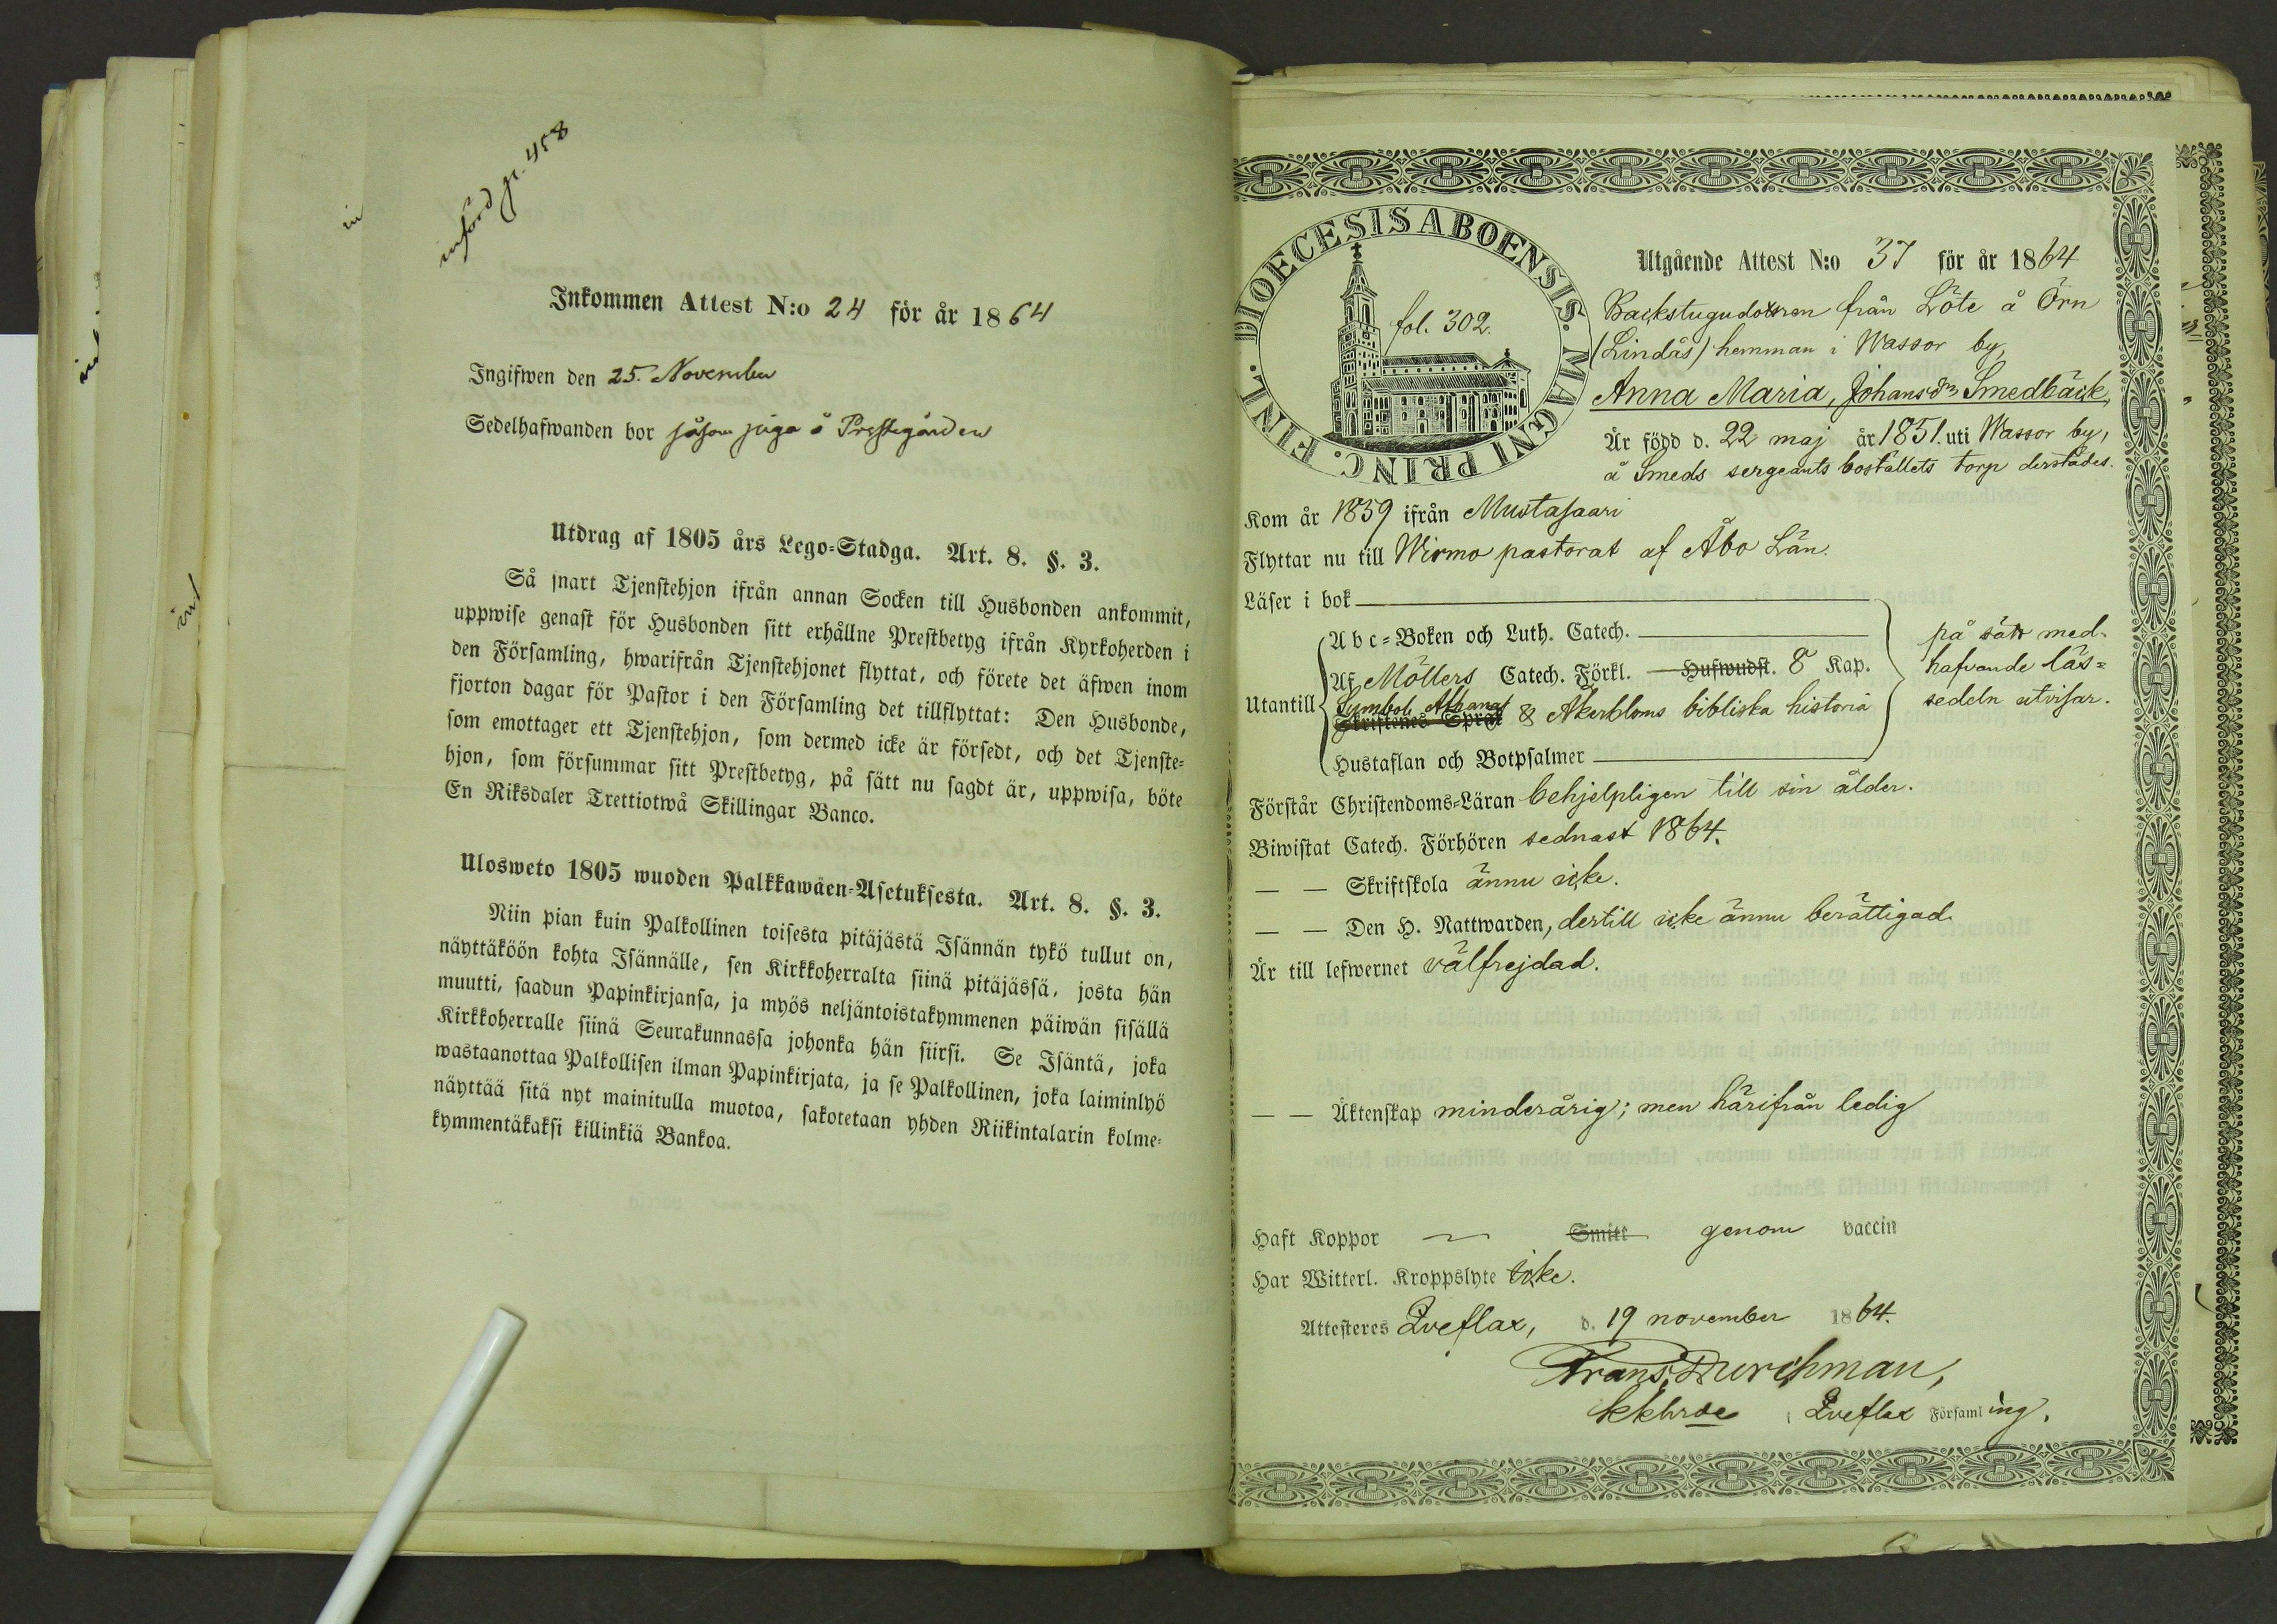 införd p. 458
Inkommen Attest N:o 24 för år 1864
Ingifwen den 25. November
Sedelhafwanden bor såsom piga å Prestegården
Utdrag af 1805 års Lego-Stadga. Art. 8. §. 3.
Så snart Tjenstehjon ifrån annan Socken till Husbonden ankommit,
uppwise genast för Husbonden sitt erhållne Prestbetyg ifrån Kyrkoherden i
den Församling, hwarifrån Tjenstehjonet flyttat, och förete det äfwen inom
fjorton dagar för Pastor i den Församling det tillflyttat: Den Husbonde,
som emottager ett Tjenstehjon, som dermed icke är försedt, och det Tjenste-
hjon, som försummar sitt Prestbetyg, på sätt nu sagdt är, uppwisa, böte
En Riksdaler Trettiotwå Skillingar Banco.
Ulosweto 1805 wuoden Palkkawäen-Asetuksesta. Art. 8. §. 3.
Niin pian kuin Palkollinen toisesta pitäjästä Isännän tykö tullut on,
näyttäköön kohta Isännälle, sen Kirkkoherralta siinä pitäjässä, josta hän
muutti, saadun Papinkirjansa, ja myös neljäntoistakymmenen päiwän sisällä
Kirkkoherralle siinä Seurakunnassa johonka hän siirsi. Se Isäntä, joka
wastaanottaa Palkollisen ilman Papinkirjata, ja se Palkollinen, joka laiminlyö
näyttää sitä nyt mainitulla muotoa, sakotetaan yhden Riikintalarin kolme-
kymmentäkaksi killinkiä Bankoa.
DIOECESIS ABOENSIS. MAGNI PRINC. FINL.
fol. 302.
Utgående Attest N:o 37 för år 1864
Backstugudottren från Löte å Örn
(Lindås) hemman i Wassor by,
Anna Maria, Johansdr Smedbäck,
Är född d. 22 maj år 1851. uti Wassor by,
å Smeds sergeants boställets torp derstädes.
Kom år 1859 ifrån Mustasaari
Flyttar nu till Wirmo pastorat af Åbo Län.
Läser i bok
Abc-Boken och Luth. Catech.
Utantill Af Möllers Catech. Förkl. Hufwudst. 8 Kap.
Symbol. Athanas
Skriftenes Språk & Åkerbloms bibliska historia
Hustaflan och Botpsalmer
på sätt med-
hafvande läs-
sedeln utvisar.
Förstår Christendoms-Läran behjelpligen till sin ålder.
Biwistat Catech. Förhören sednast 1864.
— — Skriftskola ännu icke.
— — Den H. Nattwarden, dertill icke ännu berättigad.
Är till lefwernet välfrejdad.
— — Äktenskap minderårig; men härifrån ledig
Haft Koppor — Smitt genom vaccin
Har Witterl. Kroppslyte icke.
Attesteres Qveflax, d. 19 november 1864.
Frans Durchman,
kkhrde i Qveflax Församling.